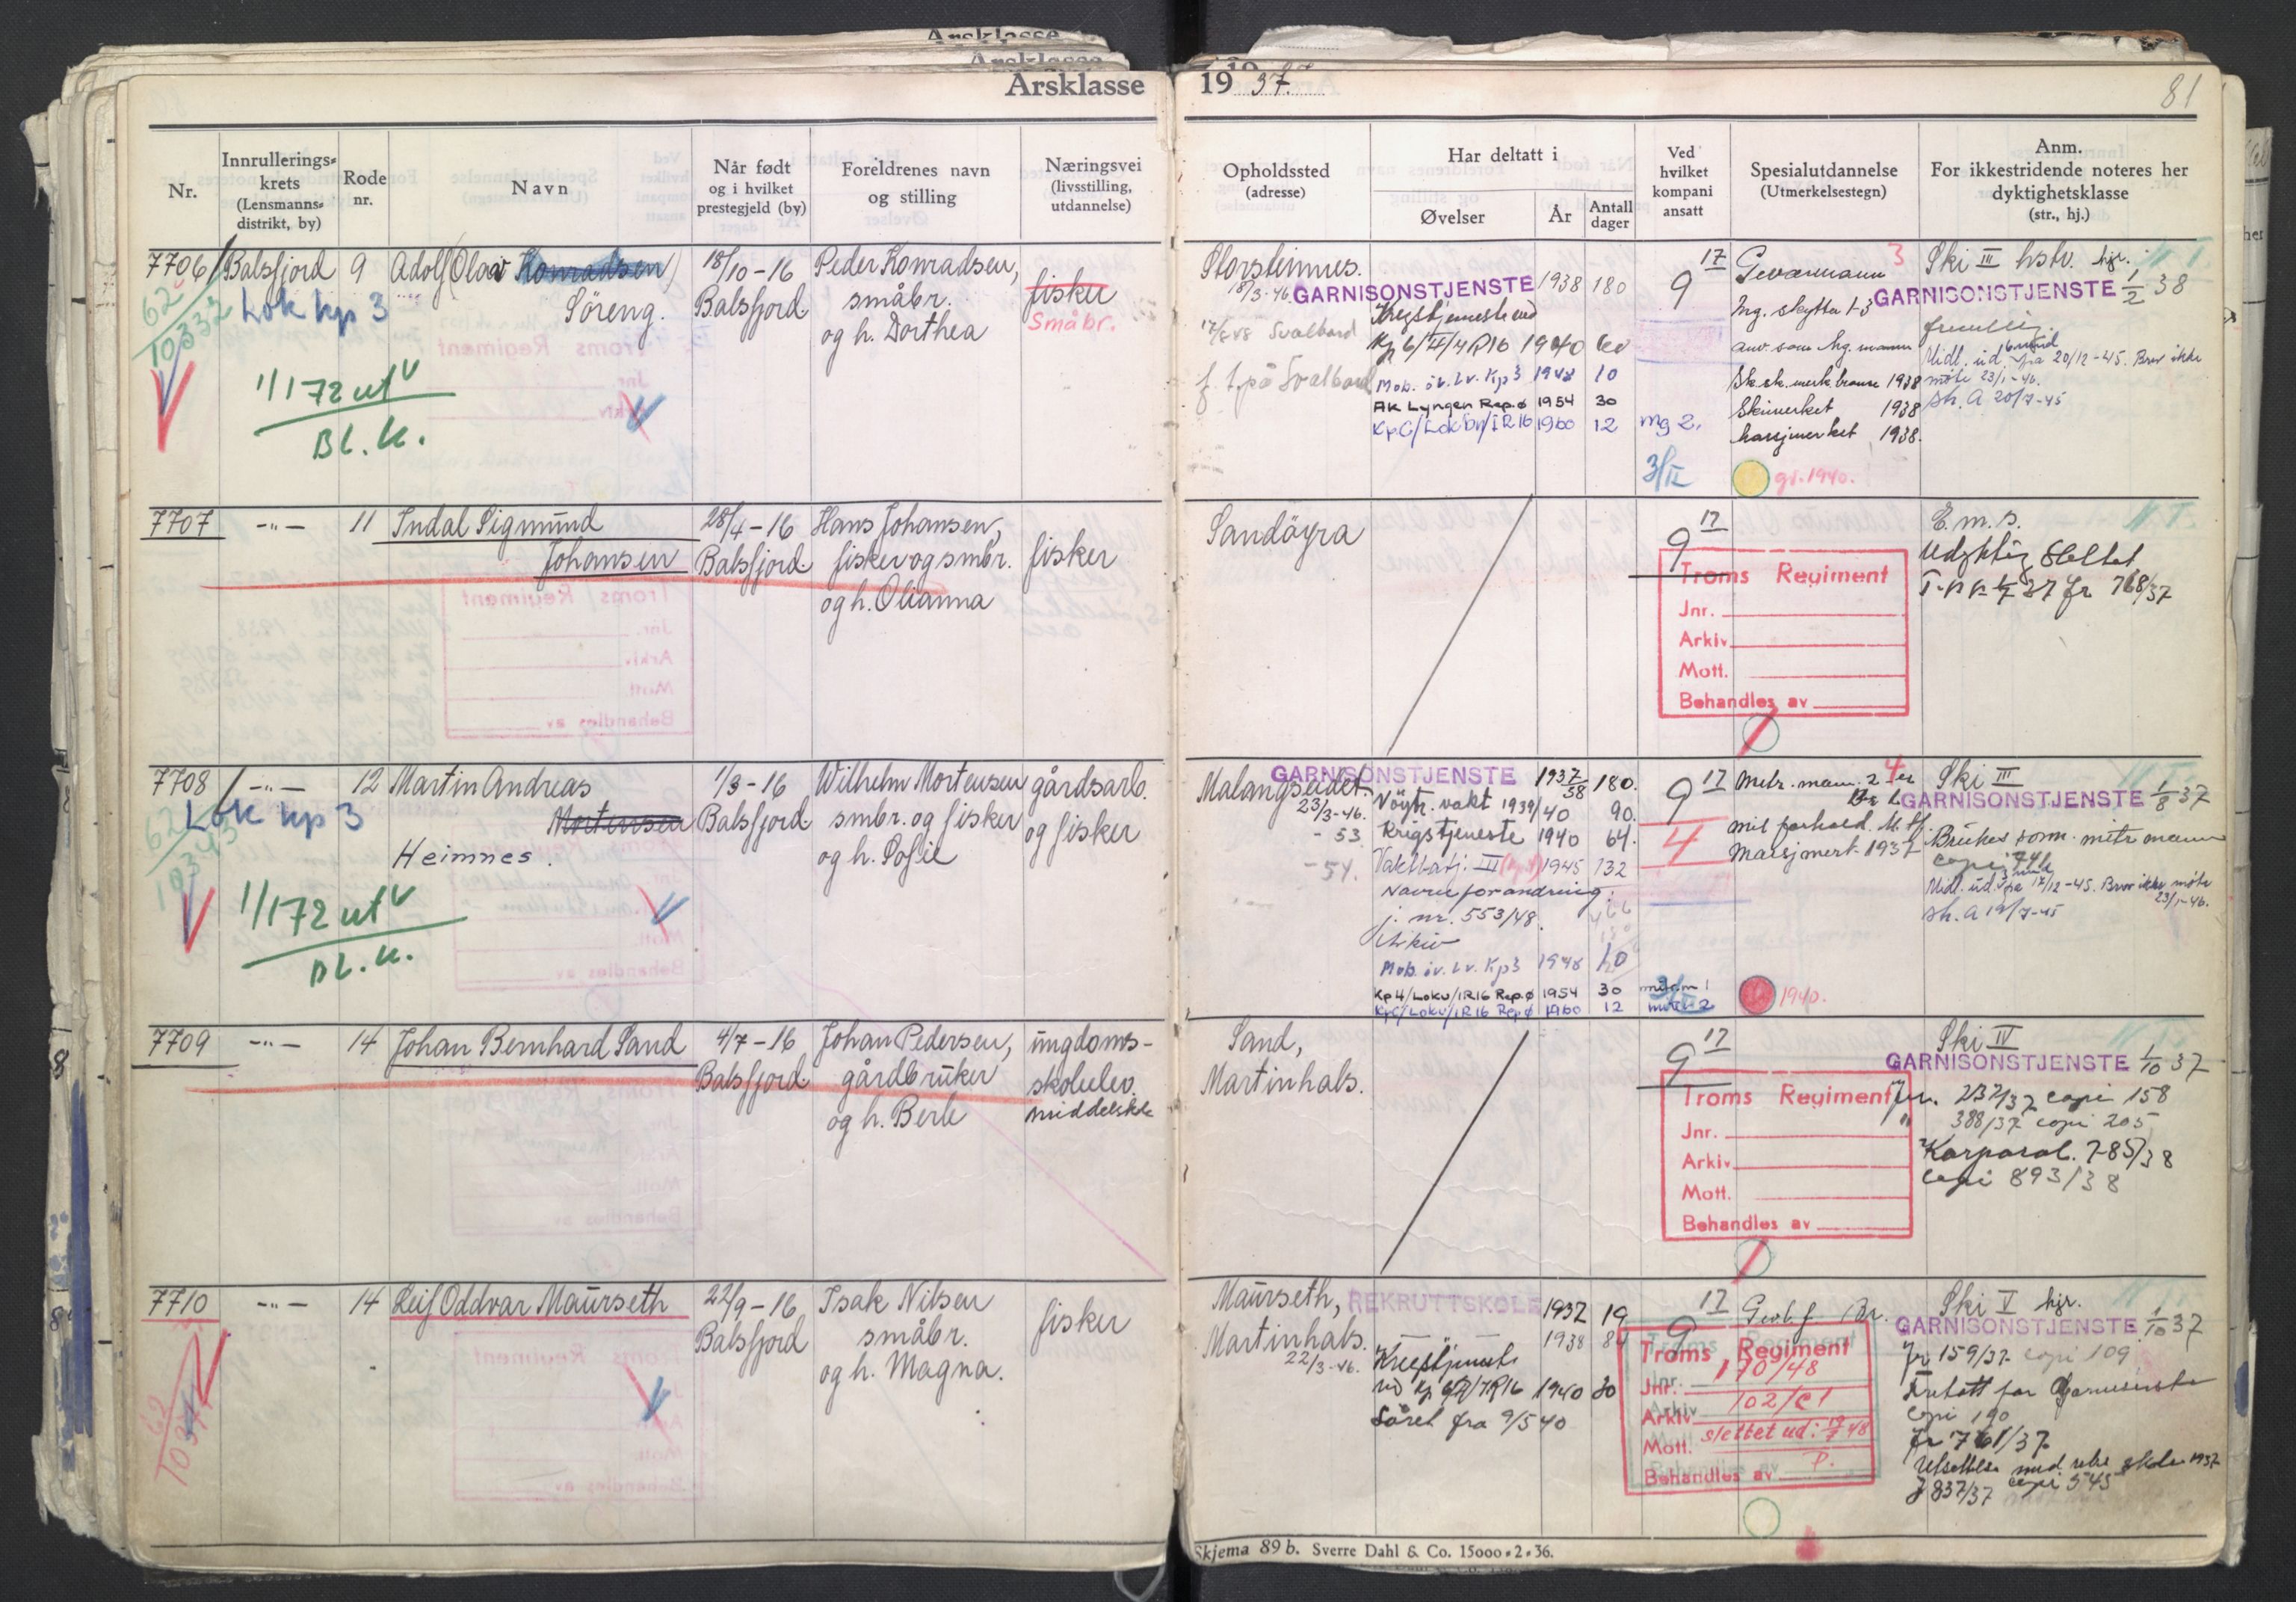 Årsklasse 1937.
81
Nr.
Innrullerings-
krets
(Lensmanns-
distrikt, by)
Rode
nr.
Navn
Når født
og i hvilket
prestegjeld (by)
Foreldrenes navn
og stilling
Næringsvei
(livsstilling,
utdannelse)
Opholdssted
(adresse)
Har deltatt i
Øvelser
År
Antall
dager
Ved
hvilket
kompani
ansatt
Spesialutdannelse
(Utmerkelsestegn)
Anm.
For ikkestridende noteres her
dyktighetsklasse
(str., hj.)
7706 Balsfjord 9 Adolf Olav Konradsen
Söreng.
62
10332
Lok kp 3
1/172 ut
BL.K.
18/10-16
Balsfjord
Peder Konradsen,
småbr.
og h. Dorthea
fisker
Småbr.
Storsteinnes.
18/3-46.
Svalbard
f. t. på Svalbard
GARNISONSTJENESTE 1938 180
Krigstjeneste ved
Kp 6/II/IR16 1940 60
Mob. öv. Lv. Kp3 1948 10
AK Lyngen Rep.ø 1954 30
KpC/Lokbn/IR16 1960 12
17
9
mg 2.
3/II
Geværmann 3
Mg. skytte 1-3
anv. som Mg. mann
Sk.sk.merk.bronse 1938
Skimerket 1938
Marsjmerket 1938.
gr. 1940.
Ski III hstv. hjr.
GARNISONSTJENESTE 1/2 38
Midl. ud. 6 mnd fra 20/12-45. Brev ikke
møte 23/1-46.
Sh. A 20/7-45
7707 -"- 11 Indal Sigmund
Johansen
28/4-16
Balsfjord
Hans Johansen,
fisker og smbr.
og h. Olianna
fisker
Sandöyra
17
9
Troms Regiment
Jnr.
Arkiv
Mott.
Behandles av
E.m.s.
Udyktig Slettet
768/37
7708 -"- 12 Martin Andreas
Mortensen
Heimnes.
Lok kp 3
62
10343
1/172 ut
BL.K.
1/3-16
Balsfjord
Wilhelm Mortensen
smbr. og fisker
og h. Sofie
gårdsarb.
og fisker
Malangseidet.
23/3-46.
- 53
- 54.
GARNISONSTJENESTE 1937/38 180.
Nöytr. vakt 1939/40 90.
Krigstjeneste 1940 64.
Vaktbatj. III 1945 132
Navneforandring:
j. nr. 553/48.
Arkiv
Mob. öv. Lv. Kp3 1948 10
Kp4/Lokv/IR16 Rep.ø 1954 30
KpC/Lokv/IR16 Rep.ø 1960 12
17
9
4
mitr.m 1
mitr. 2
Mitr. mann. 2 4
mil forhold. M.tf.
Marsjmerk 1937
1940.
Ski III
GARNISONSTJENESTE 1/8 37
Brukes som mitr mann
Midl. ud. 3 mnd fra 17/12-45. Brev ikke møte
23/1-46.
Sh. A 19/7-45
7709 -"- 14 Johan Bernhard Sand
4/7-16
Balsfjord
Johan Pedersen,
gårdbruker
og h. Berle
ungdoms-
skoleelev.
middelskole
Sand,
Martinhals.
17
9
Troms Regiment
Jnr.
Arkiv
Mott.
Behandles av
Ski IV
GARNISONSTJENESTE 1/10 37
Jnr. 237/37 copi 158
" 388/37 copi 205
Korporal. 785/38
copi 893/38
7710 -"- 14 Leif Oddvar Maurseth
62
10371
22/9-16
Balsfjord
Isak Nilsen
småbr.
og h. Magna.
fisker
Maurseth,
Martinhals.
22/3-46.
REKRUTTSKOLE 1937 19
1938 84
Krigstjeneste
ved Kp 6/II/IR16 1940 30
Såret fra 9/5 40
17
9
Troms Regiment
Jnr. 170/48
Arkiv 102/C1
Mott. slettet ud: 19/7 48
Behandles av P.
Ski V hjr.
GARNISONSTJENESTE 1/10 37
Jr 159/37 copi 109
Fritatt for Garnisonstj
copi 190
Jr 761/37
Utsettelse med rekr skole 1937
J 837/37 copi 545
Skjema 89 b. Sverre Dahl & Co. 15000-2-36.